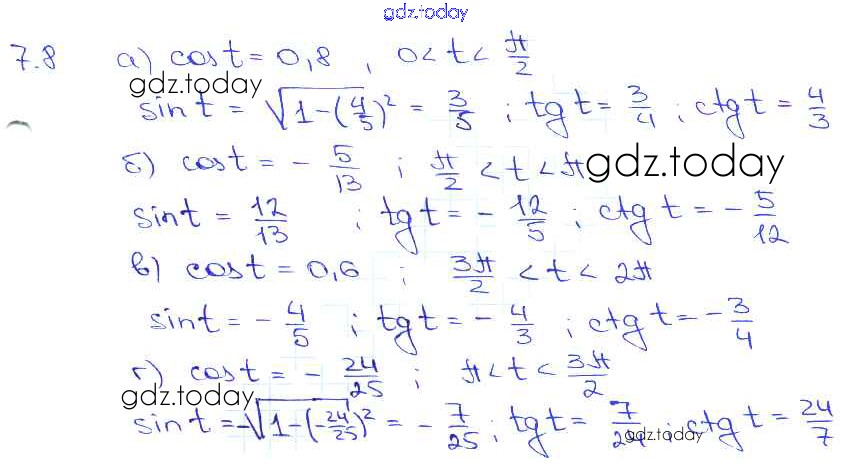 gdz.today
7.8 а) cos t = 0,8 , 0 < t < π/2
gdz.today
sin t = √(1-(4/5)²) = 3/5 ; tg t = 3/4 ; ctg t = 4/3
б) cos t = - 5/13 ; π/2 < t < π
gdz.today
sin t = 12/13 ; tg t = - 12/5 ; ctg t = - 5/12
в) cos t = 0,6 ; 3π/2 < t < 2π
sin t = - 4/5 ; tg t = - 4/3 ; ctg t = - 3/4
г) cos t = - 24/25 ; π < t < 3π/2
gdz.today
sin t = -√(1-(-24/25)²) = - 7/25 ; tg t = 7/24 ; ctg t = 24/7
gdz.today